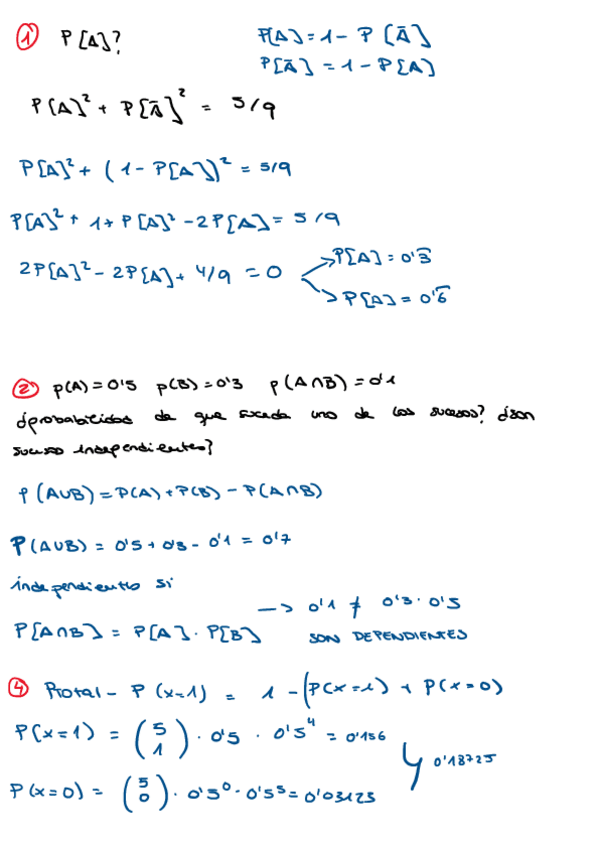 ① P[A]? P[A] = 1 - P[Ā]
P[Ā] = 1 - P[A]
P[A]² + P[Ā]² = 5/9
P[A]² + (1 - P[A])² = 5/9
P[A]² + 1 + P[A]² - 2P[A] = 5/9
2P[A]² - 2P[A] + 4/9 = 0 P[A] = 0'3̄
P[A] = 0'6̄
② p(A) = 0'5 p(B) = 0'3 p(A∩B) = 0'1
¿probabilidas de que suceda uno de los sucesos? ¿son
suceso independientes?
P(A∪B) = P(A) + P(B) - P(A∩B)
P(A∪B) = 0'5 + 0'3 - 0'1 = 0'7
independientes si
P[A∩B] = P[A] · P[B] → 0'1 ≠ 0'3 · 0'5
SON DEPENDIENTES
④ Ptotal - P(x=1) = 1 - (P(x=1) + P(x=0)
P(x=1) = (5 1) · 0'5 · 0'5⁴ = 0'156
0'18725
P(x=0) = (5 0) · 0'5⁰ · 0'5⁵ = 0'03125